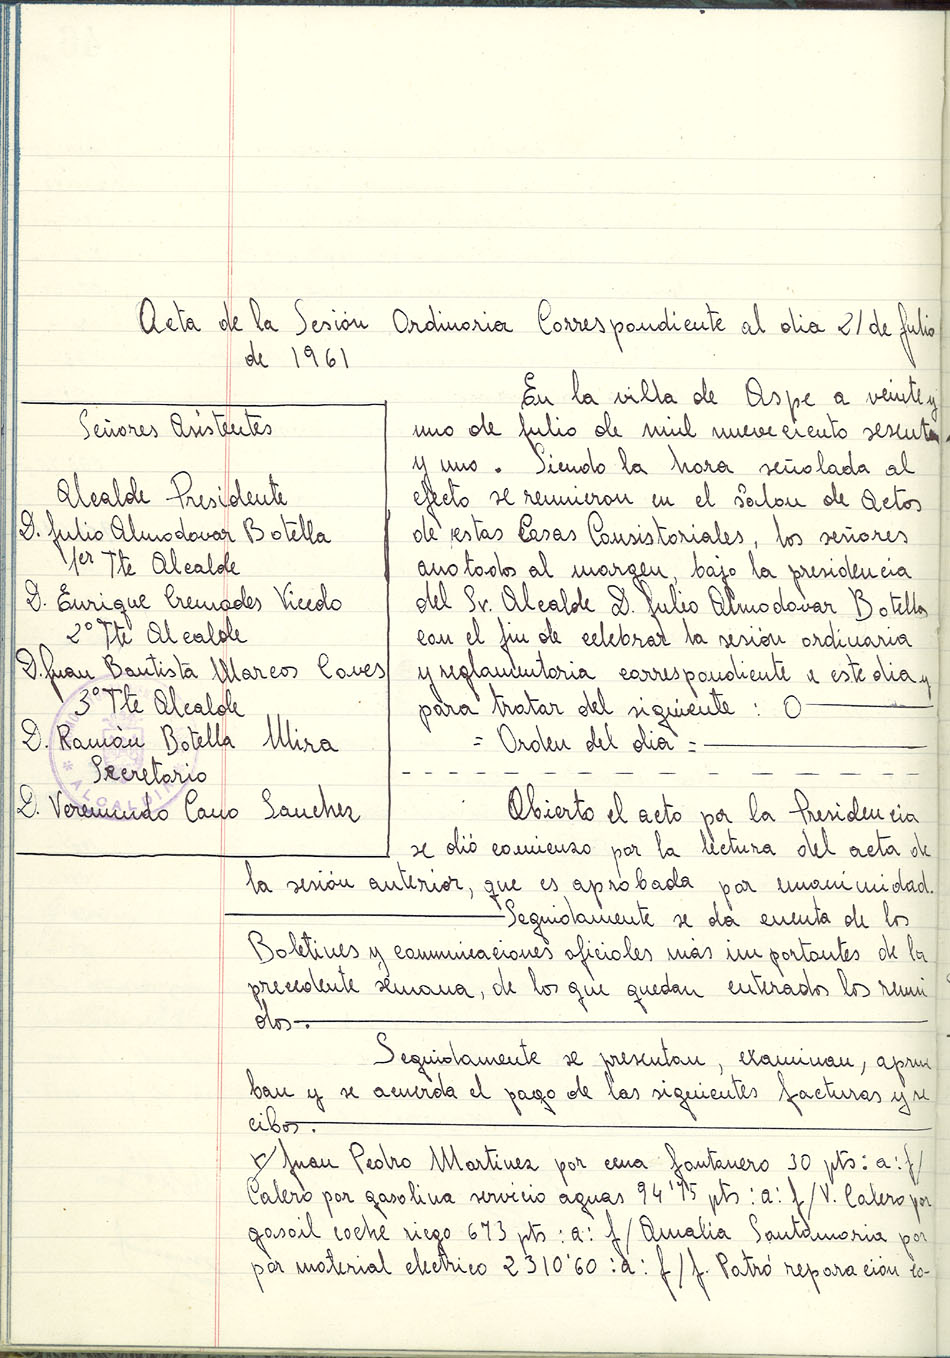 Acta de la Sesión Ordinaria Correspondiente al dia 21 de Julio
de 1961
Señores Asistentes
Alcalde Presidente
D. Julio Almodovar Botella
1er Tte Alcalde
D. Enrique Cremades Vicedo
2º Tte Alcalde
D. Juan Bautista Marcos Caves
3º Tte Alcalde
D. Ramón Botella Mira
Secretario
D. Veremundo Cano Sanchez
ALCALDIA
En la villa de Aspe a veinte y
uno de Julio de mil nueve ciento sesenta
y uno. Siendo la hora señalada al
efecto se reunieron en el Salon de Actos
de estas Casas Consistoriales, los señores
anotados al margen, bajo la presidencia
del Sr. Alcalde D. Julio Almodovar Botella
con el fin de celebrar la sesión ordinaria
y reglamentaria correspondiente a este dia y
para tratar del siguiente : O
= Orden del dia =
Abierto el acto por la Presidencia
se dió comienzo por la lectura del acta de
la sesión anterior, que es aprobada por unanimidad.
Seguidamente se da cuenta de los
Boletines y comunicaciones oficiales más importantes de la
precedente semana, de los que quedan enterados los reuni
dos.
Seguidamente se presentan, examinan, aprue
ban y se acuerda el pago de las siguientes facturas y re
cibos.
Juan Pedro Martinez por cena fontanero 30 pts : a : f/
Calero por gasolina servicio aguas 94'75 pts : a : f/ V. Calero por
gasoil coche riego 673 pts : a : f/ Amalia Santamaria por
por material electrico 2310'60 : a : f/ J. Patró reparación co-